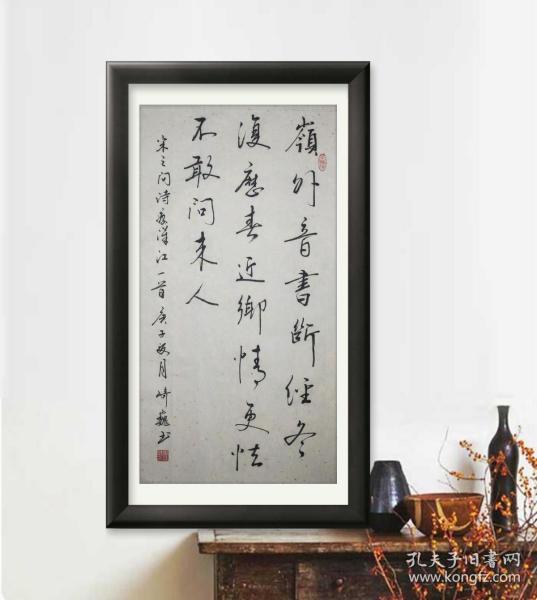 嶺外音書斷經冬
復歷春近鄉情更怯
不敢問來人
宋之問詩度漢江一首庚子
孔夫子旧書网
www.kongfz.com